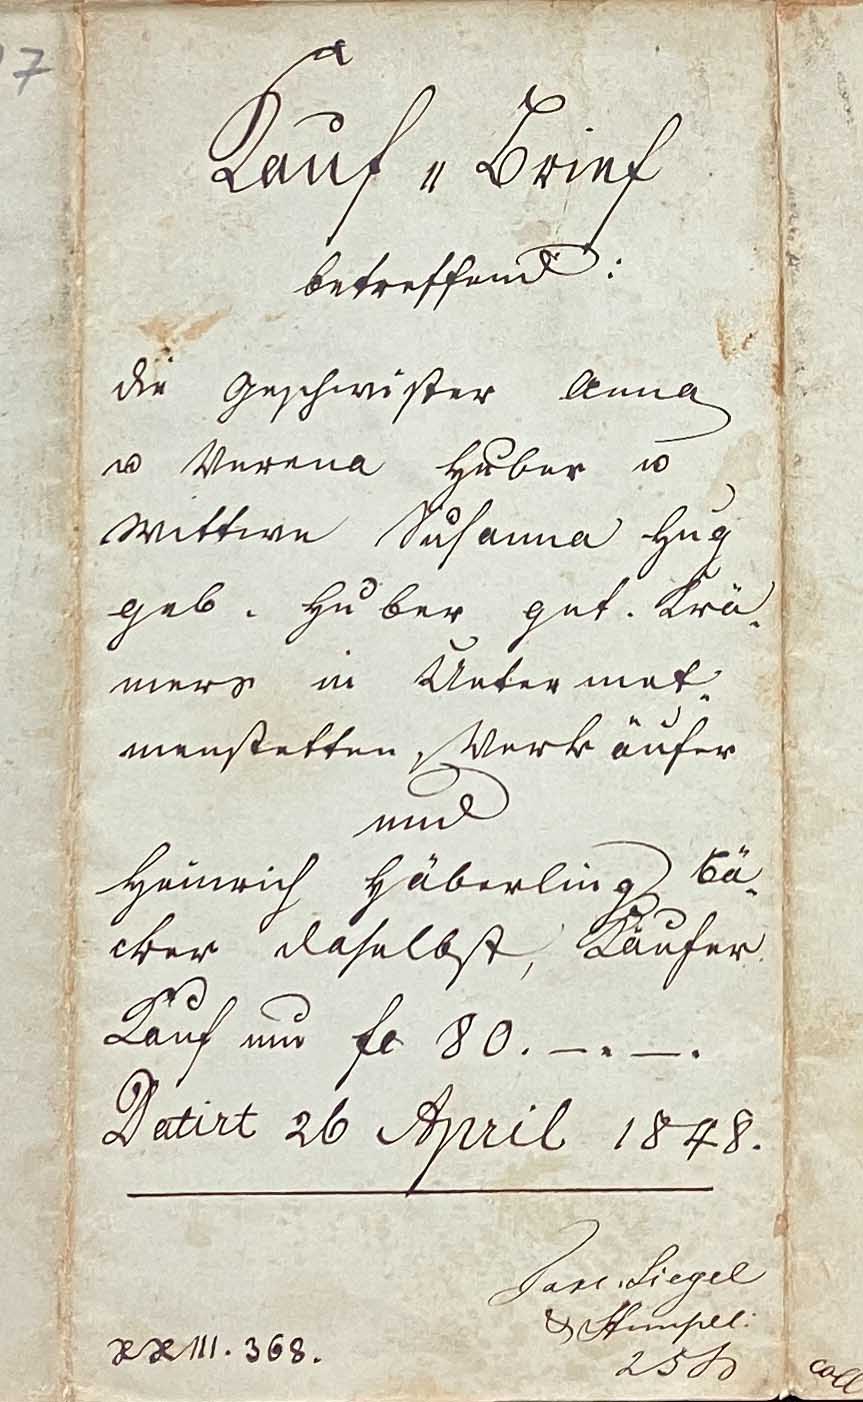 17
Kauf " Brief
betreffend :
die Geschwister Anna
u Verena Huber u
Wittwe Susanna Hug
geb. Huber gnt. Krä-
mers in Untermet-
menstetten, Verkäufer
und
Heinrich Häberling Bä-
cker daselbst, Käufer
Kauf um fl 80. — . — .
Datirt 26 April 1848.
Taxe. Siegel
& Stempel:
25 ß
XXIII. 368.
coll